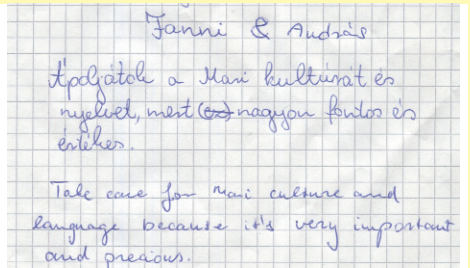 Fanni & András
Ápoljátok a Mari kultúrát és
nyelvet, mert (ez) nagyon fontos és
értékes.
Take care for Mari culture and
language because it's very important
and precious.